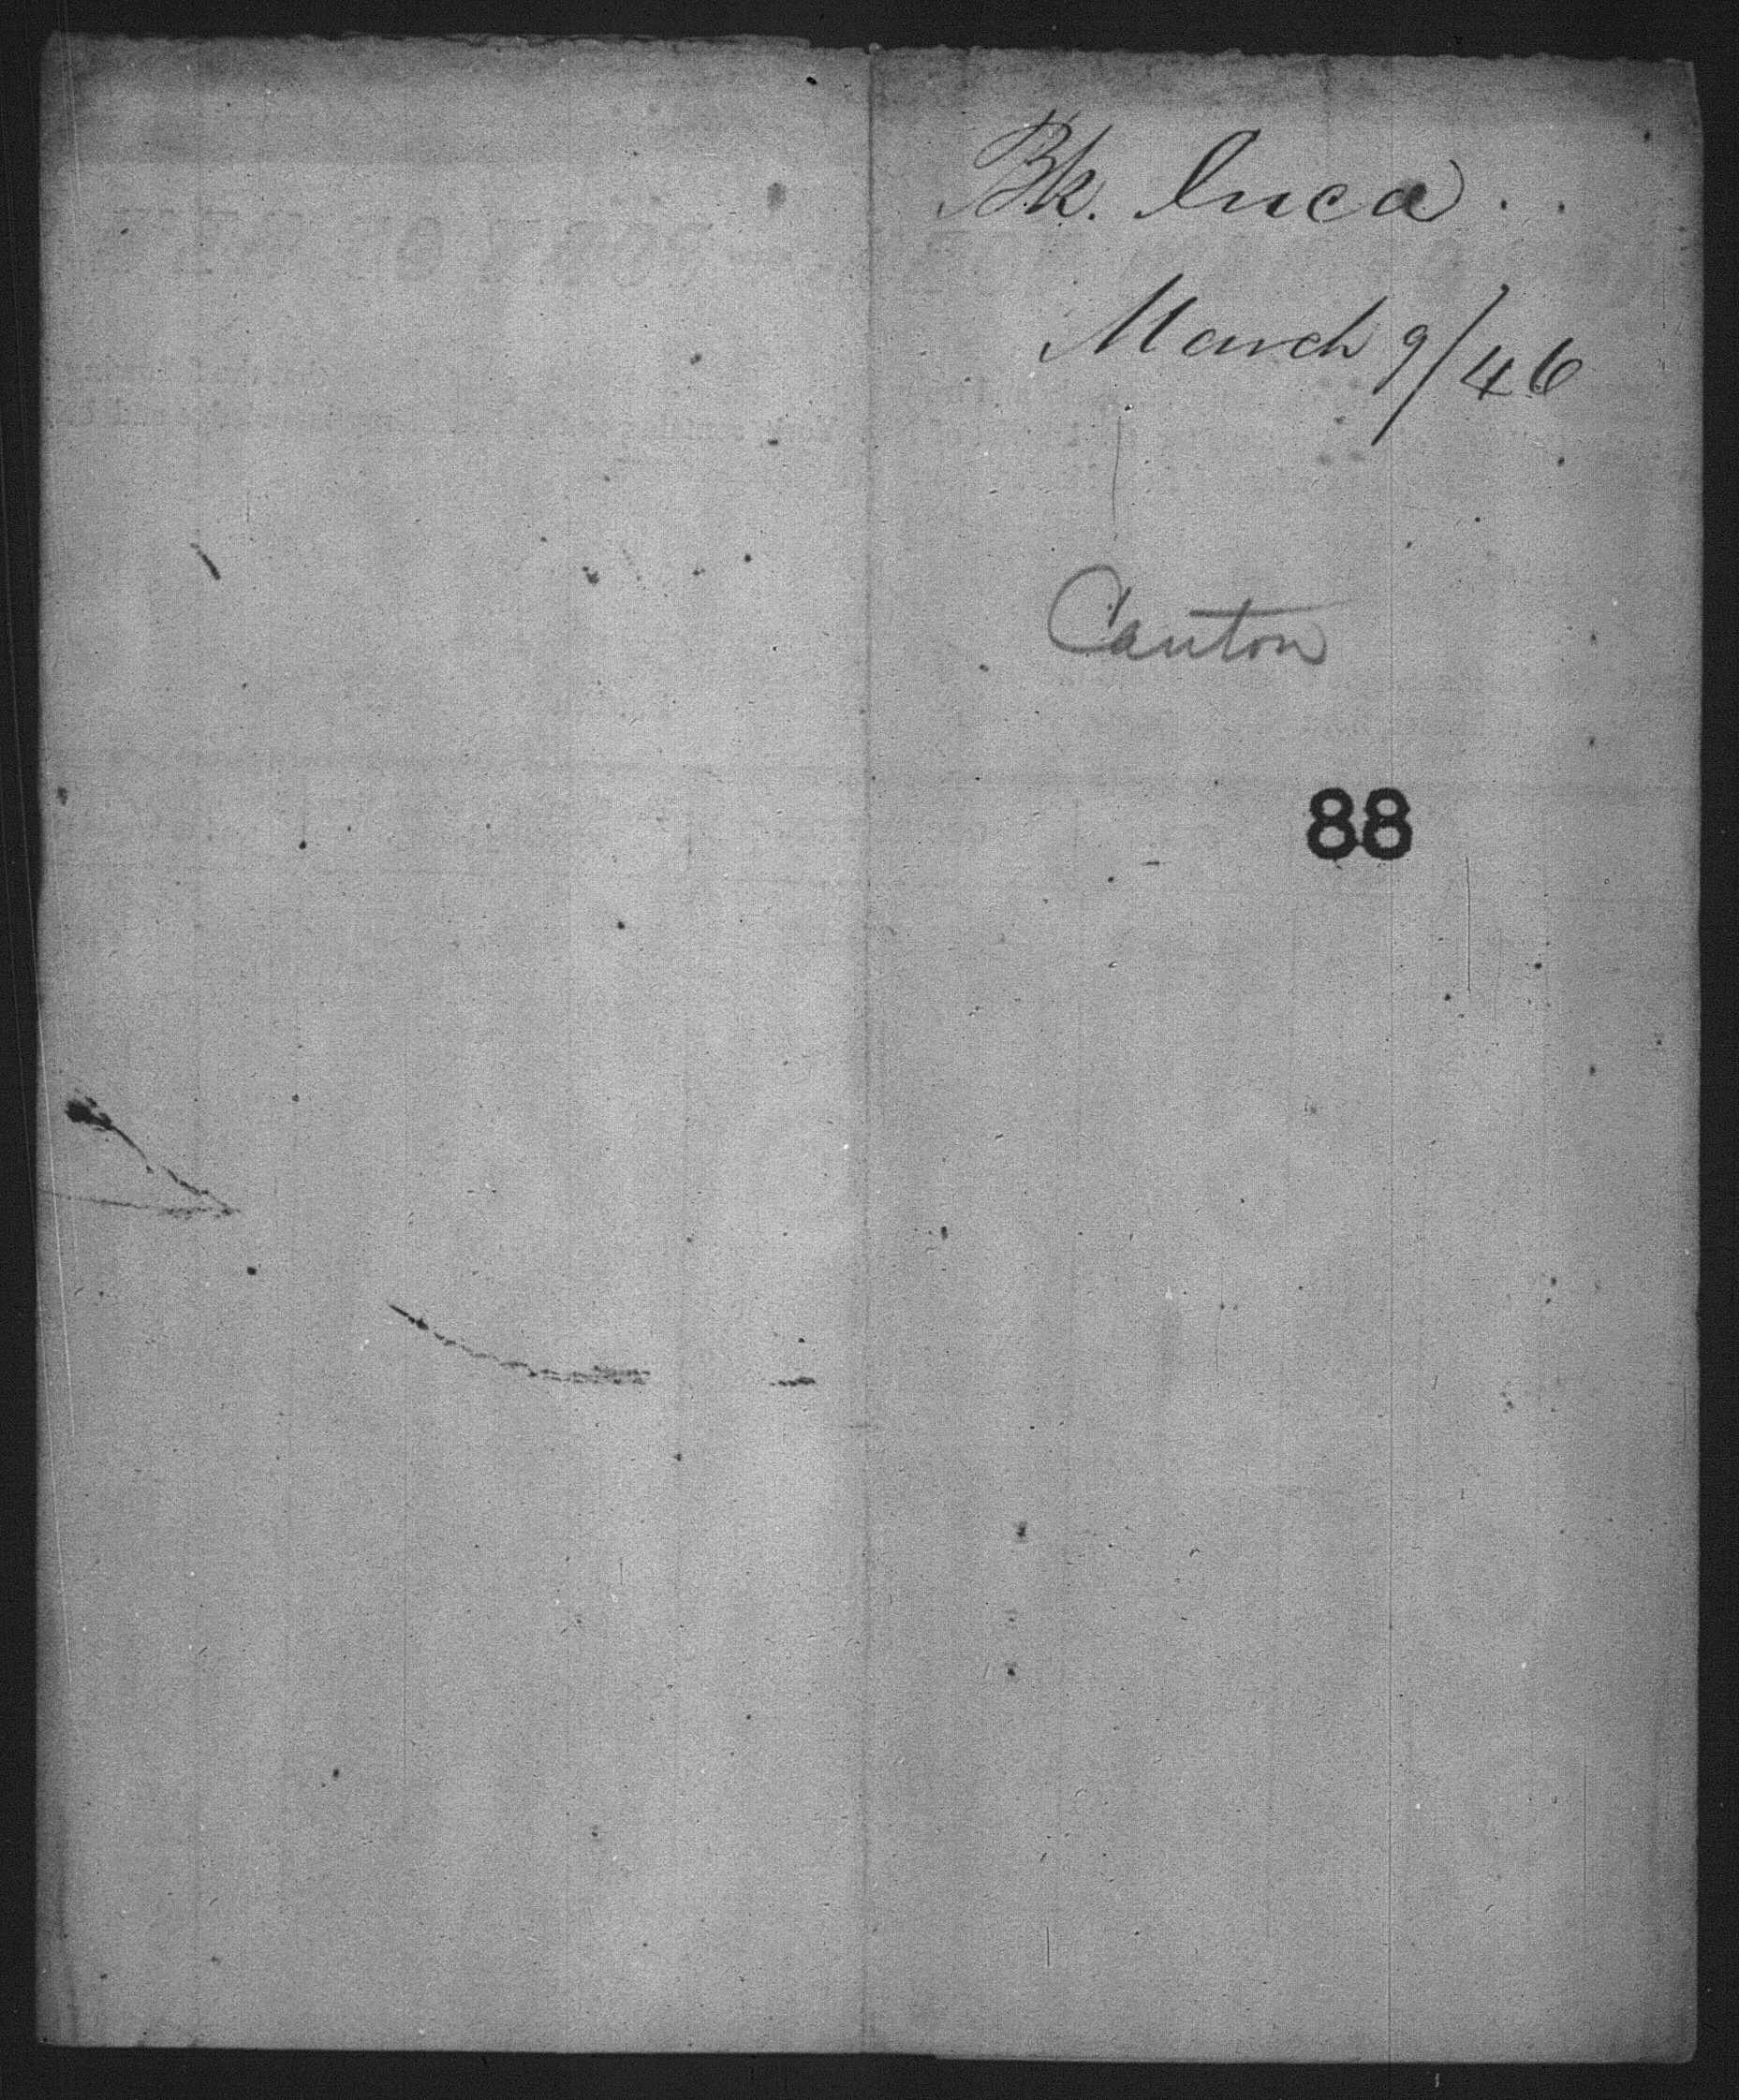 Bk. Inca
March 9/46
Canton
88